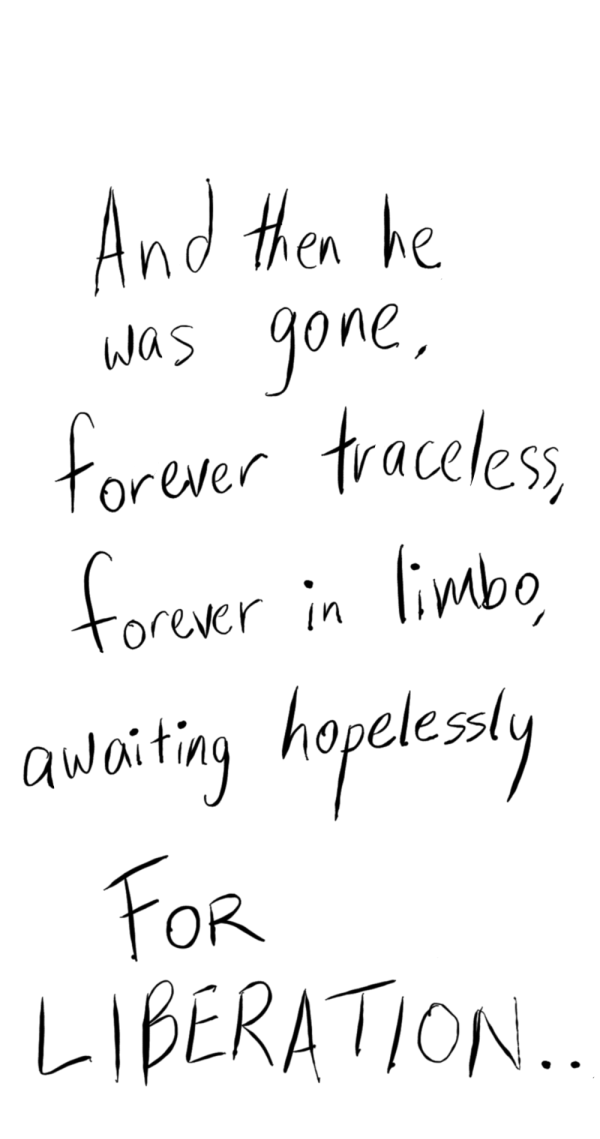 And then he
was gone,
forever traceless,
forever in limbo,
awaiting hopelessly
FOR
LIBERATION..